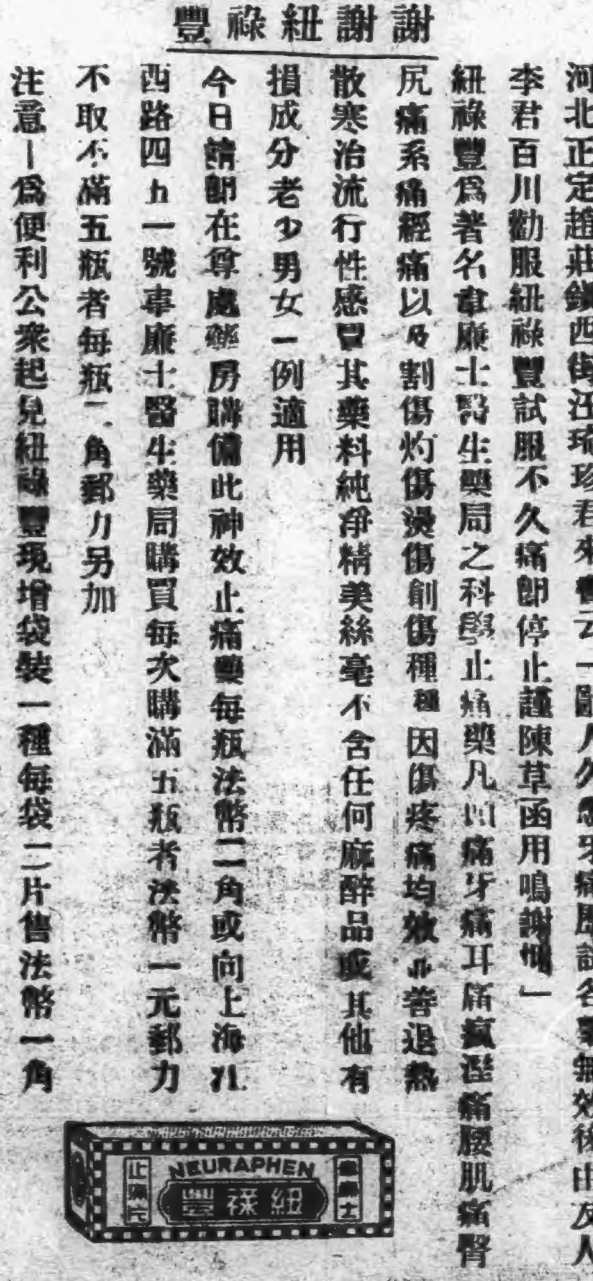 謝謝紐祿豐
河北正定趙莊鎮西街汪瑞珍君來書云「鄙人久患牙痛歷試各藥無效後由友人
李君百川勸服紐祿豐試服不久痛即停止謹陳草函用鳴謝悃」
紐祿豐爲著名韋廉士醫生藥局之科學止痛藥凡頭痛牙痛耳痛瘋溼痛腰肌痛臀
尻痛系痛經痛以及割傷灼傷燙傷創傷種種因傷疼痛均效亦善退熱
散寒治流行性感冒其藥料純淨精美絲毫不含任何麻醉品或其他有
損成分老少男女一例適用
今日請即在尊處藥房購備此神效止痛藥每瓶法幣二角或向上海江
西路四五一號韋廉士醫生藥局購買每次購滿五瓶者法幣一元郵力
不取不滿五瓶者每瓶二角郵力另加
注意—爲便利公衆起見紐祿豐現增袋裝一種每袋二片售法幣一角
韋廉士
NEURAPHEN
紐祿豐
止痛片